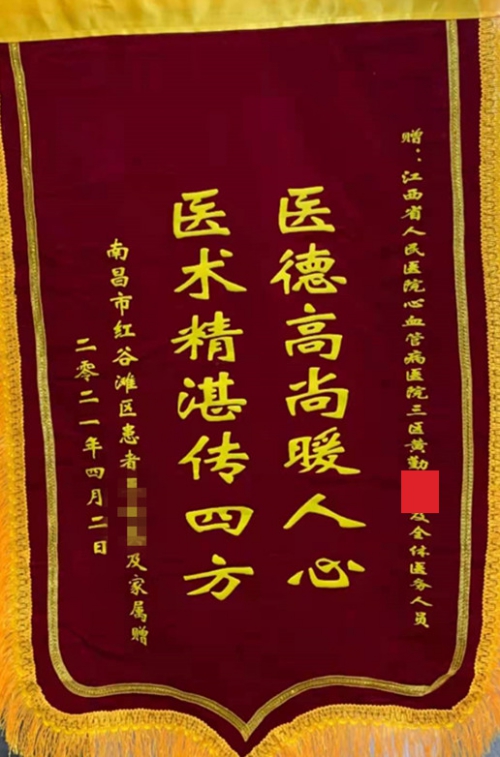 赠：江西省人民医院心血管病医院三区黄勤及全体医务人员
医德高尚暖人心
医术精湛传四方
南昌市红谷滩区患者及家属赠
二零二一年四月二日